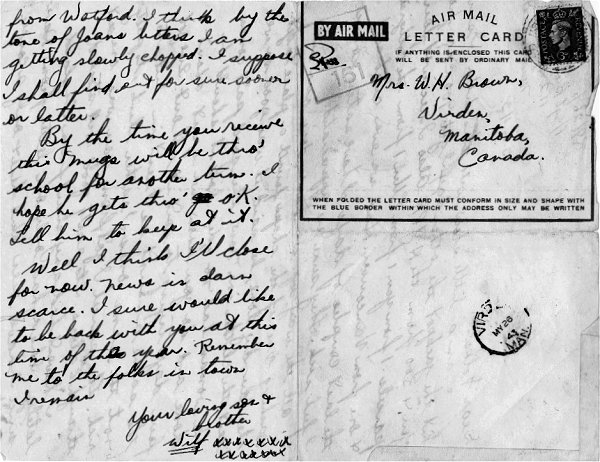 from Watford. I think by the
tone of Joans letters I am
getting slowly chopped. I suppose
I shall find out for sure sooner
or latter.
By the time you receive
this mugs will be thro'
school for another term. I
hope he gets thro' OK.
Tell him to keep at it.
Well I think I'll close
for now. news is darn
scarce. I sure would like
to be back with you at this
time of the year. Remember
me to the folks in town
I remain
Your loving son &
brother
Wilf xxxxxxx
xxxxxxx
BY AIR MAIL
AIR MAIL
LETTER CARD
IF ANYTHING IS ENCLOSED THIS CARD
WILL BE SENT BY ORDINARY MAIL
151
Mrs. W. H. Brown,
Virden,
Manitoba,
Canada.
WHEN FOLDED THE LETTER CARD MUST CONFORM IN SIZE AND SHAPE WITH
THE BLUE BORDER WITHIN WHICH THE ADDRESS ONLY MAY BE WRITTEN
MY 28
43
MAN.